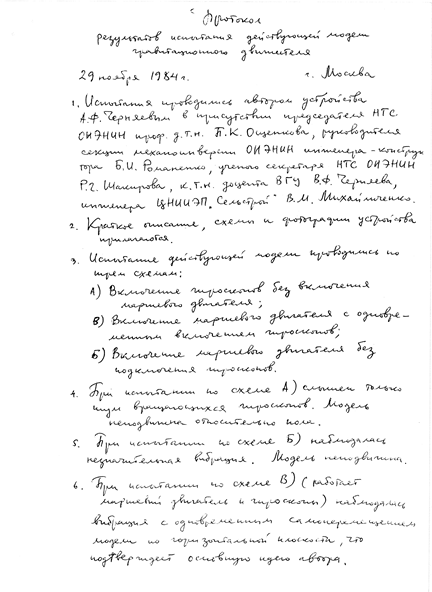 Протокол
результатов испытания действующей модели
гравитационного двигателя
29 ноября 1984г. г. Москва
1. Испытания проводились автором устройства
А.Ф. Черняевым в присутствии председателя НТС
ОИЭНИН проф. д.т.н. П.К. Ощепкова, руководителя
секции механоинверсии ОИЭНИН инженера-конструк
тора Б.И. Романенко, ученого секретаря НТС ОИЭНИН
Р.Г. Шакирова, к.т.н. доцента ВГУ В.Ф. Черняева,
инженера ЦНИИЭП "Сельстрой" В.М. Михайличенко.
2. Краткое описание, схемы и фотографии устройства
прилагаются.
3. Испытание действующей модели проводились по
трем схемам:
А) Включение гироскопов без включения
маршевого двигателя;
В) Включение маршевого двигателя с одновре-
менным включением гироскопов;
Б) Включение маршевого двигателя без
подключения гироскопов.
4. При испытании по схеме А) слышен только
шум вращающихся гироскопов. Модель
неподвижна относительно пола.
5. При испытании по схеме Б) наблюдалась
незначительная вибрация. Модель неподвижна.
6. При испытании по схеме В) (работает
маршевый двигатель и гироскопы) наблюдалась
вибрация с одновременным самоперемещением
модели по горизонтальной плоскости, что
подтверждает основную идею автора.